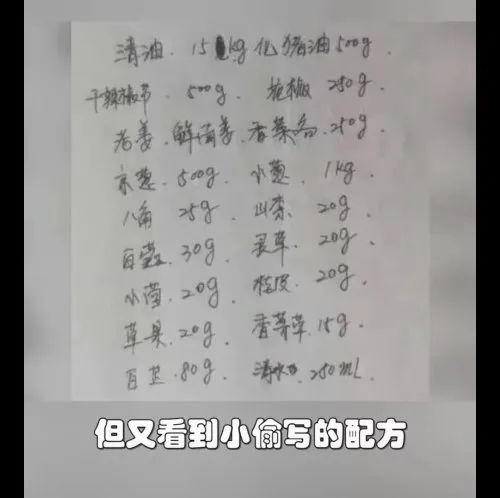 清油. 15kg 化猪油500g.
干辣椒节. 500g. 花椒 250g.
老姜. 鲜南姜. 香菜各.250g.
京葱. 500g. 小葱. 1kg.
八角 25g. 山奈. 20g.
百蔻. 30g. 灵草. 20g.
小茴. 20g. 桂皮. 20g.
草果. 20g. 香茅草. 15g.
百芷. 80g. 清水 250mL.
但又看到小偷写的配方